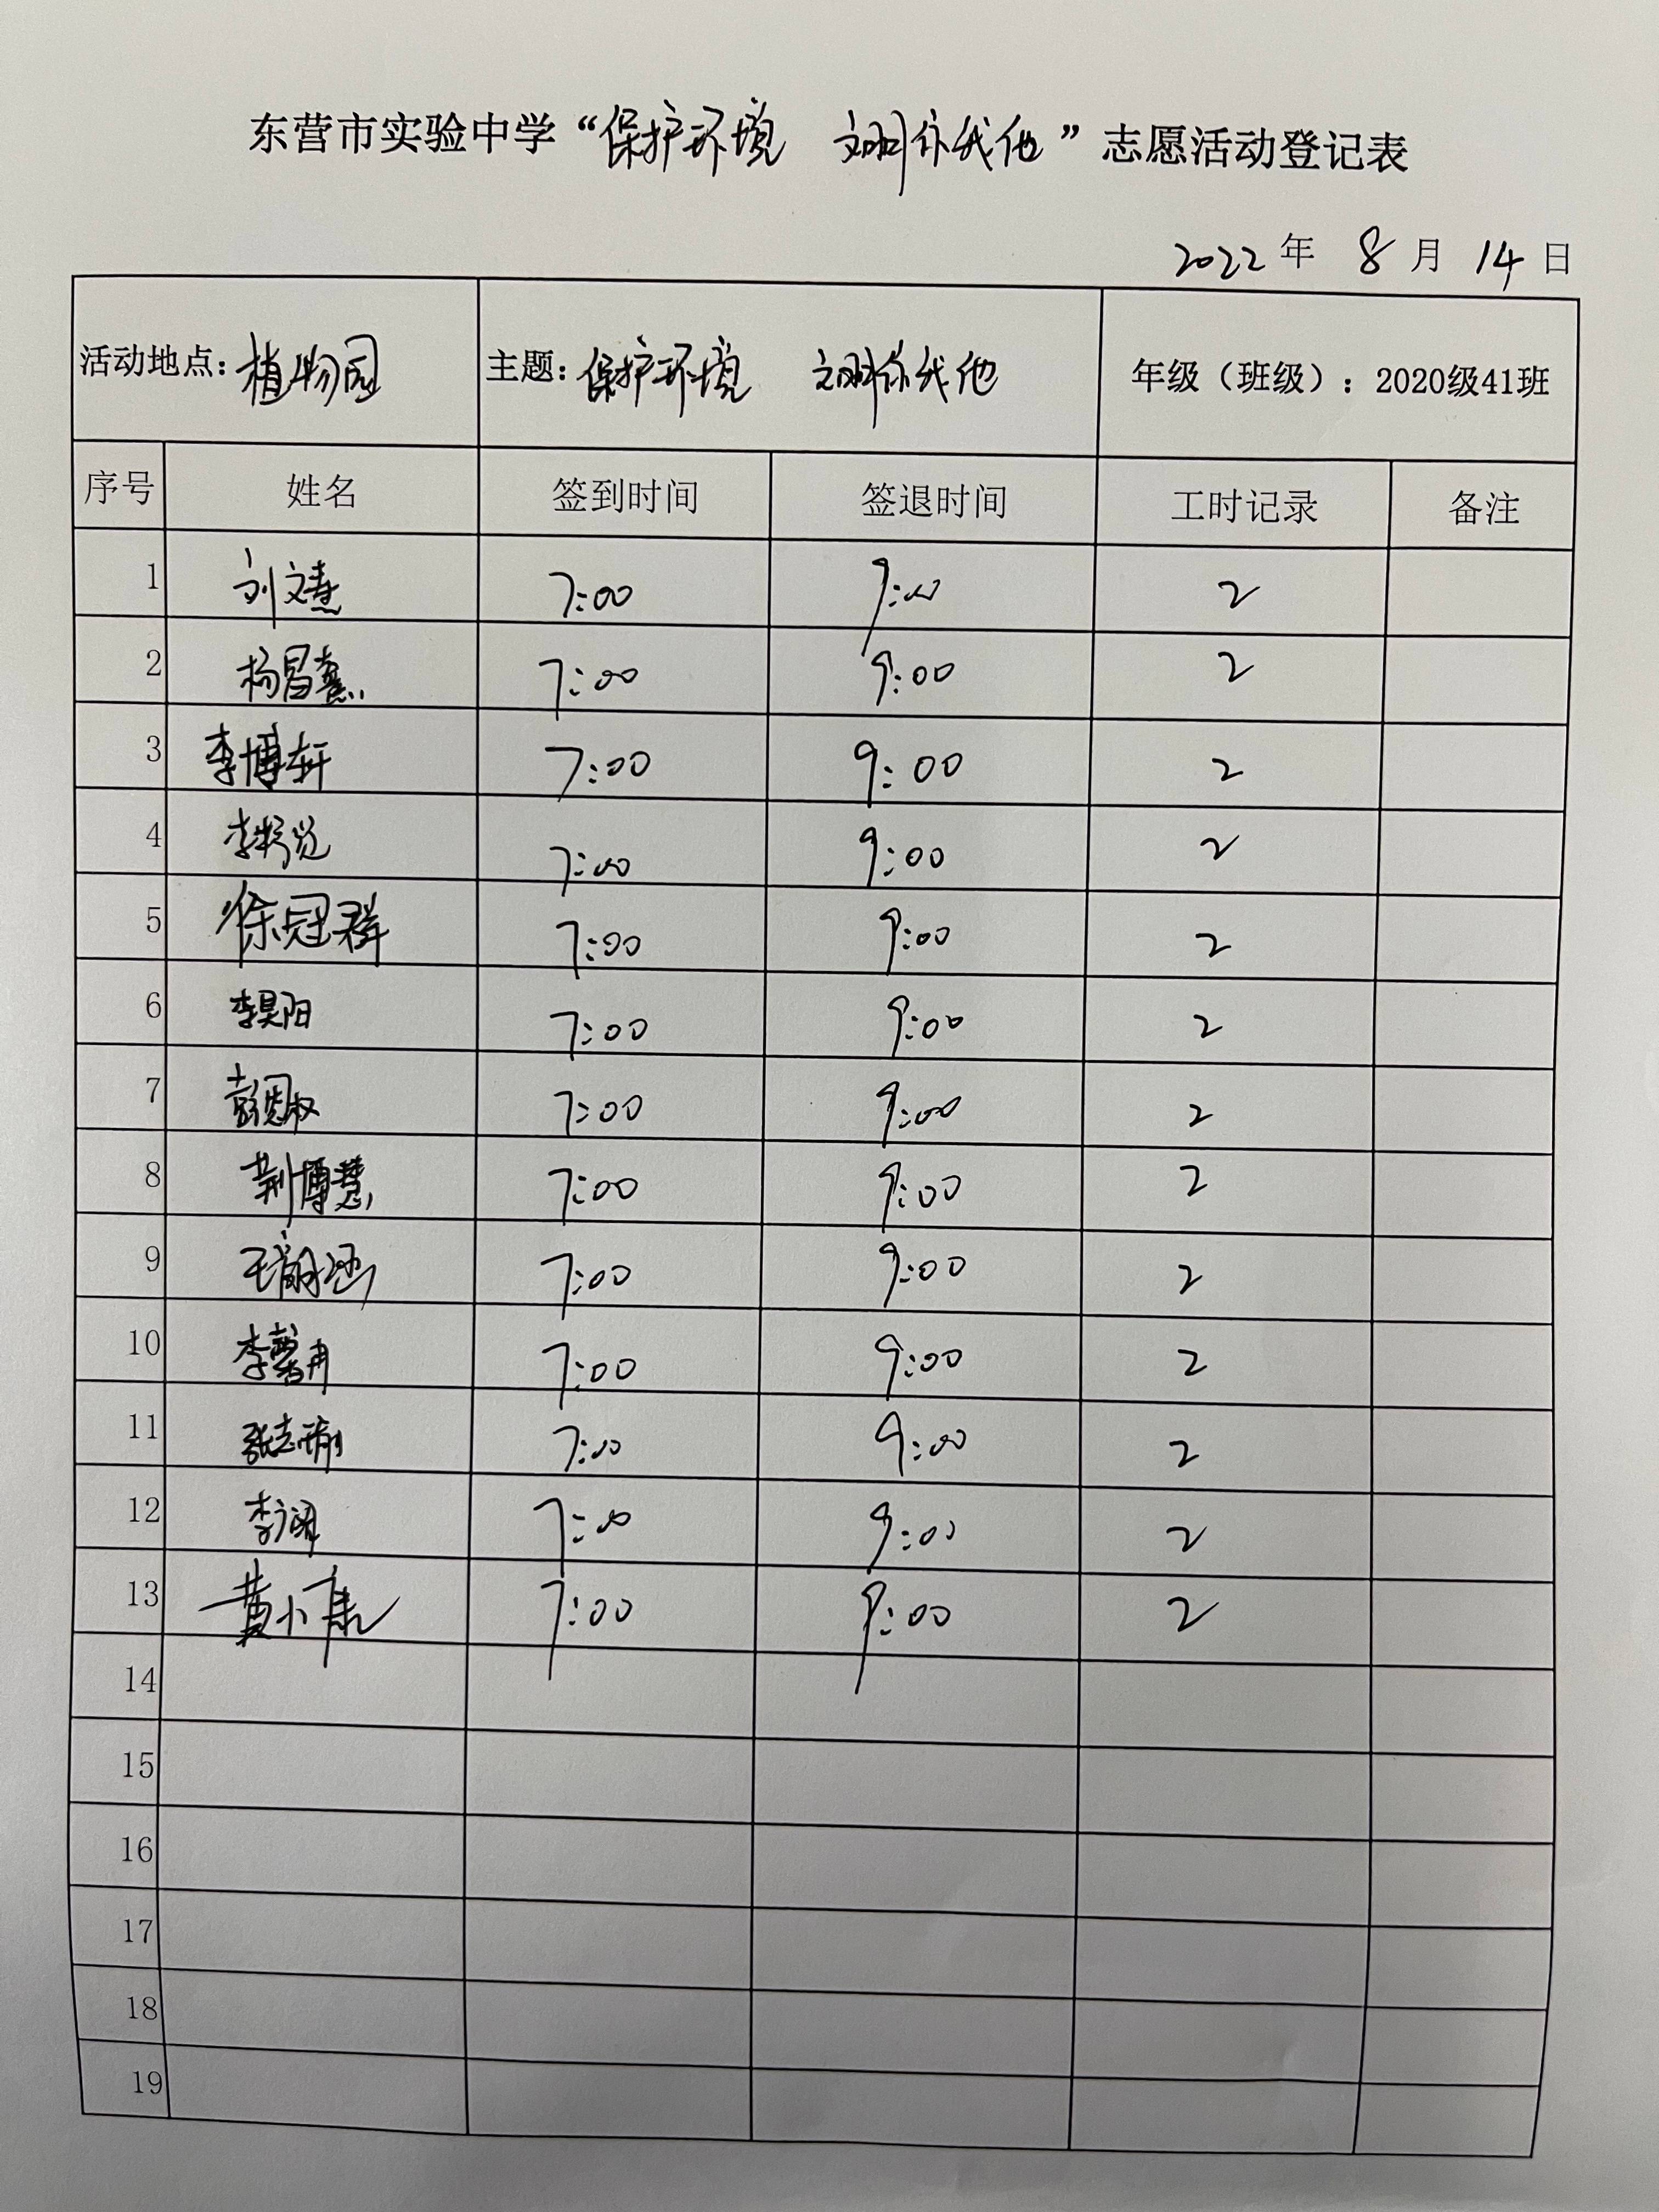 东营市实验中学“保护环境 文明你我他”志愿活动登记表
2022 年 8 月 14 日
活动地点：植物园 主题：保护环境 文明你我他 年级（班级）：2020级41班
序号 姓名 签到时间 签退时间 工时记录 备注
1 刘文慧 7:00 9:00 2
2 杨昌熹 7:00 9:00 2
3 李博轩 7:00 9:00 2
4 7:00 9:00 2
5 徐冠群 7:00 9:00 2
6 李昊阳 7:00 9:00 2
7 7:00 9:00 2
8 荆博慧 7:00 9:00 2
9 7:00 9:00 2
10 李馨冉 7:00 9:00 2
11 7:00 9:00 2
12 7:00 9:00 2
13 黄小康 7:00 9:00 2
14
15
16
17
18
19